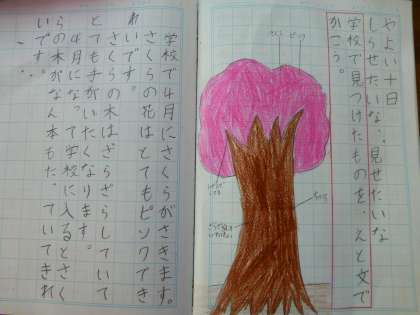 やよい十日
しらせたいな、見せたいな
学校で見つけたものを、えと文で
かこう。
ピンク
学校で4月にさくらがさきます。
さくらの花はとてもピンクでき
れいです。
さくらの木はざらざらしていて
とても手がいたくなります。
4月になって学校に入るとさく
らの木がなん本もたっていてきれ
いです。